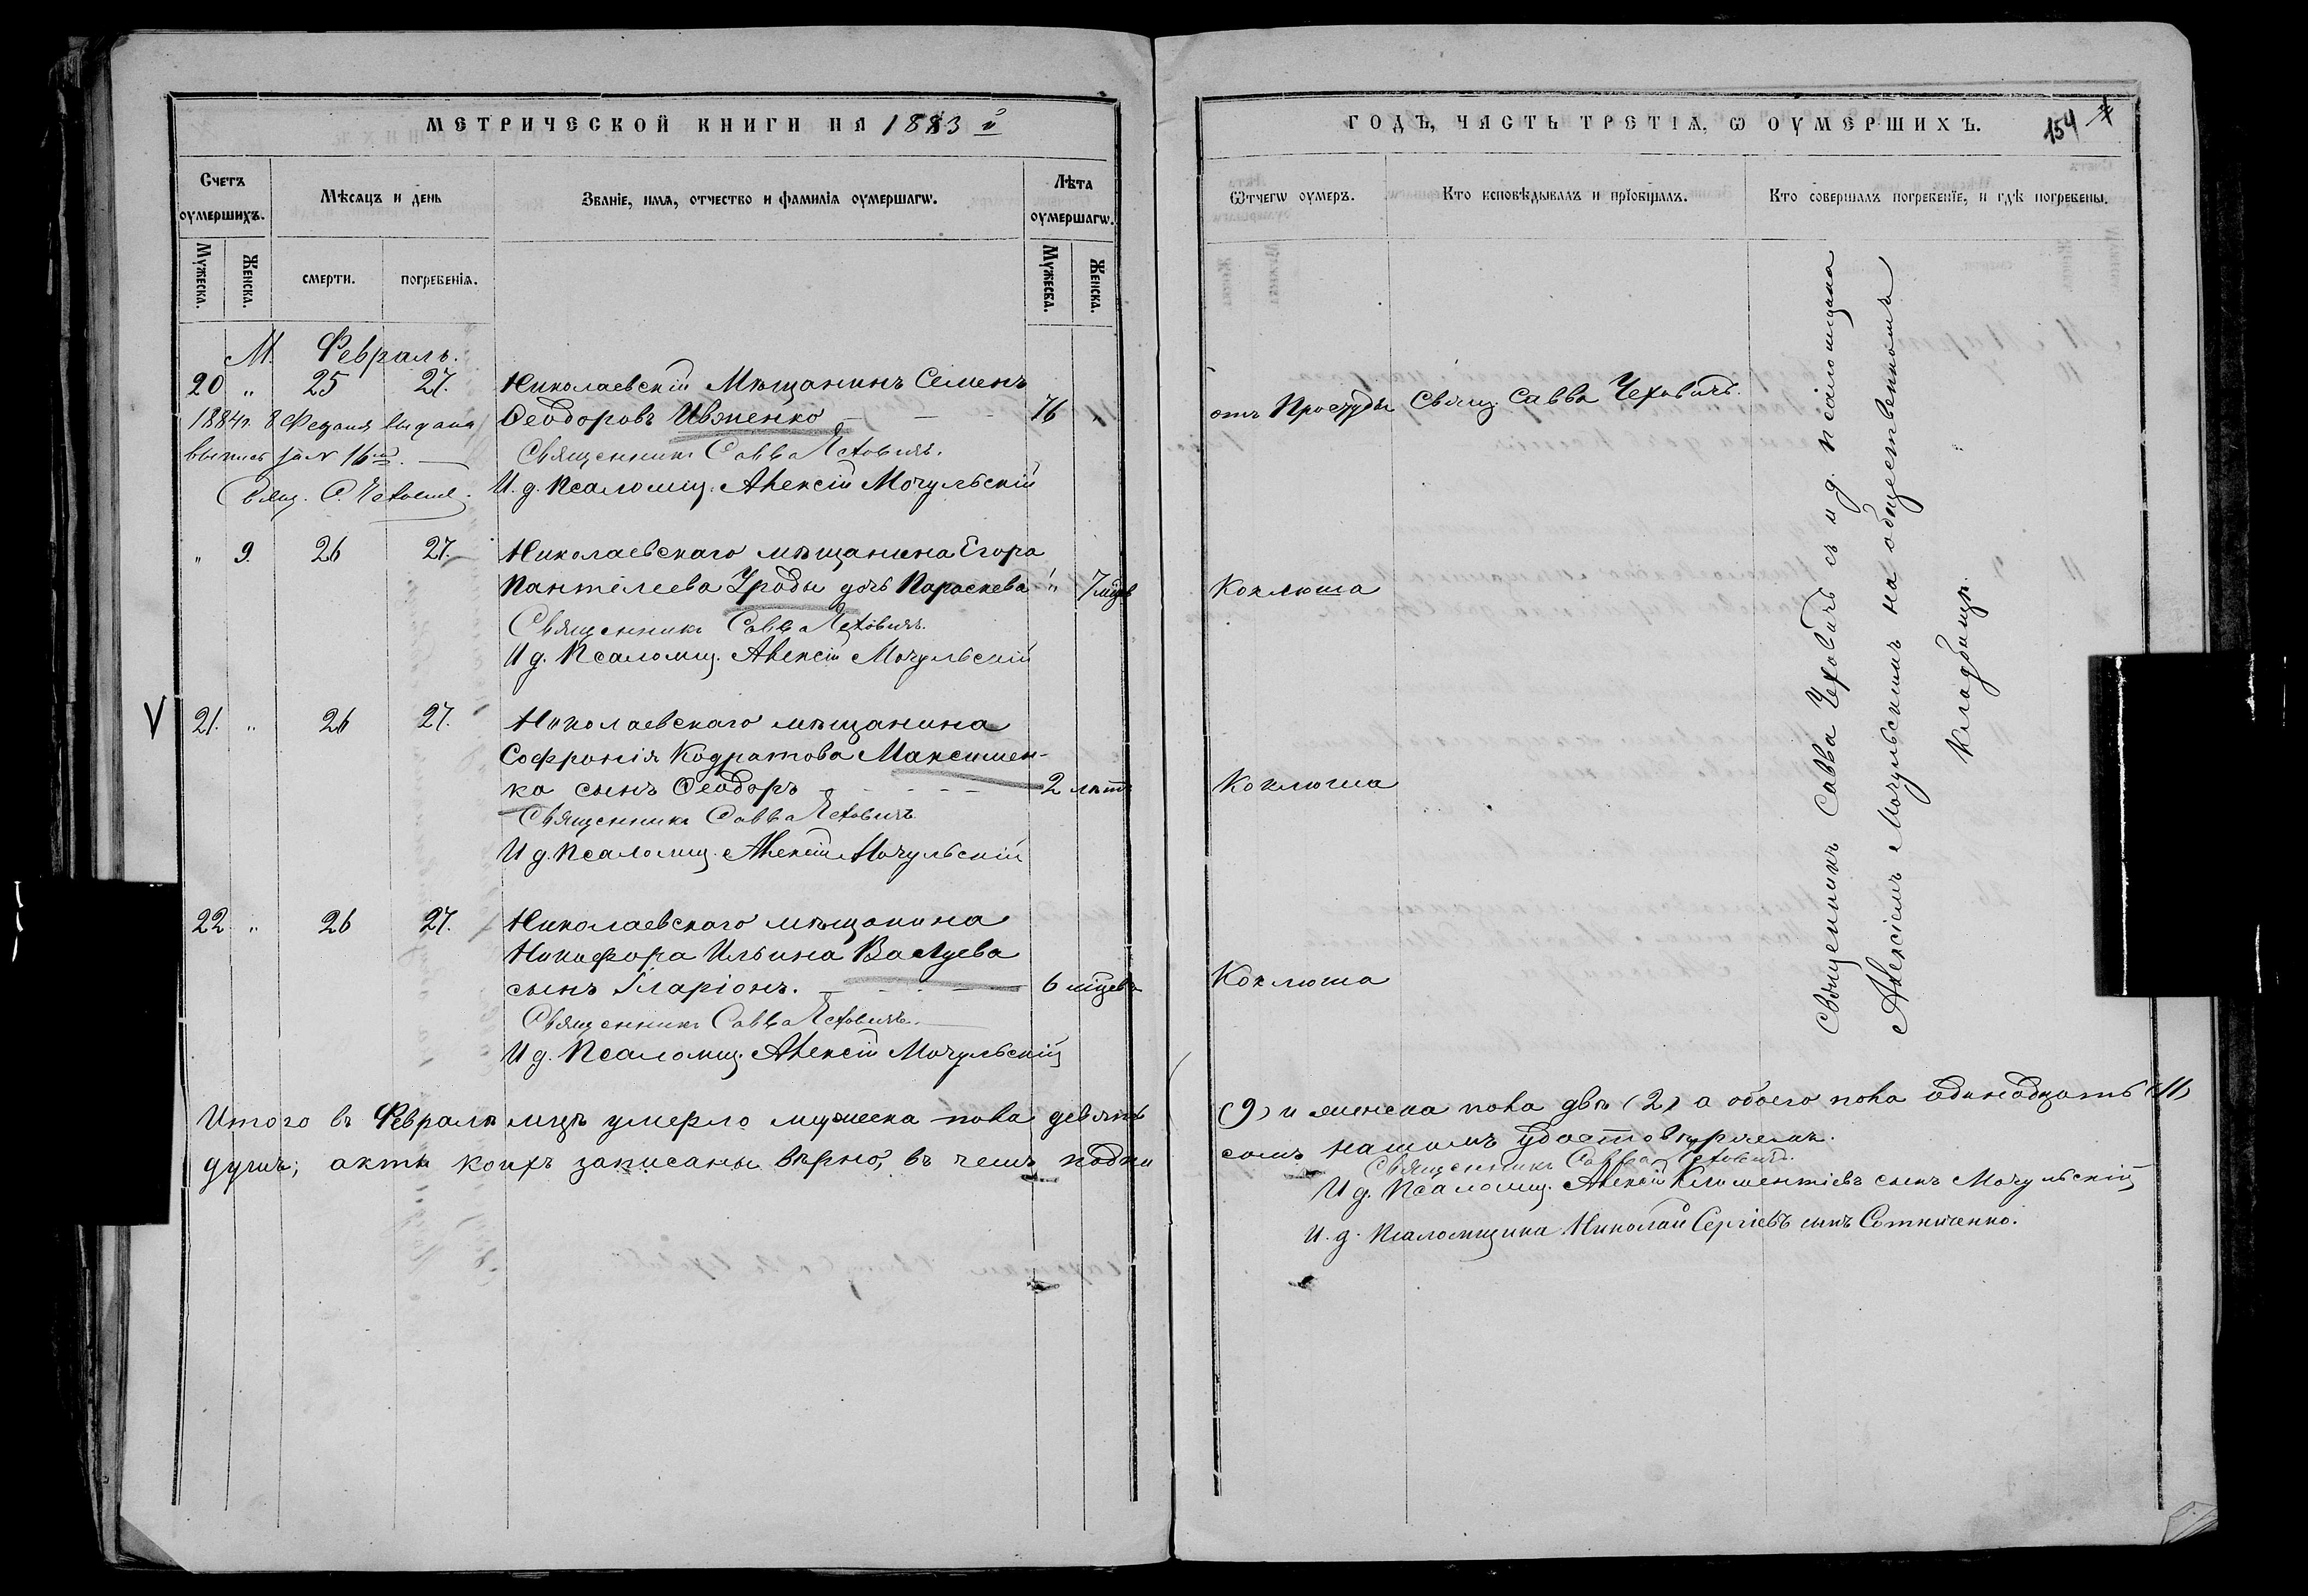 МЕТРИЧЕСКОЙ КНИГИ НА 1883 й
Счетъ оумершихъ.
Мѣсяцъ и день
Званіе, имя, отчество и фамилія оумершагѡ.
Лѣта оумершагѡ.
Мужеска.
Женска.
смерти.
погребенія.
Мужеска.
Женска.
М. Февраль.
20 " 25 27. Николаевскій Мѣщанинъ Семенъ
Ѳеодоровъ Ивженко 76 "
1884 г. 8 выдана
выпись за № 16
Свящ. С. Чехович.
Священникъ Савва Чеховичъ.
И. д. Псаломщ. Алексій Мочульскій
" 9. 26 27. Николаевскаго мѣщанина Егора
Пантелеева Уроды дочь Параскева " 7 мцвъ
Священникъ Савва Чеховичъ.
И д. Псаломщ. Алексій Мочульскій
V 21. " 26 27. Николаевскаго мѣщанина
Софронія Кодратова Максимен-
ка сынъ Ѳеодоръ 2 лѣтъ
Священникъ Савва Чеховичъ
И д. Псаломщ. Алексій Мочульскій
22 " 26 27. Николаевскаго мѣщанина
Никифора Ильина
сынъ Іларіонъ. 6 мцевъ
Священникъ Савва Чеховичъ.
И д. Псаломщ. Алексій Мочульскій
Итого въ Февралѣ мцѣ умерло мужеска пола девять
душъ; акты коихъ записаны вѣрно, въ чемъ подпи
ГОДЪ, ЧАСТЬ ТРЕТІЯ, Ѡ ОУМЕРШИХЪ.
154
Ѿчегѡ оумеръ.
Кто исповѣдывалъ и пріобщалъ.
Кто совершалъ погребеніе, и гдѣ погребены.
отъ Простуды Свящ. Савва Чеховичъ.
Коклюша
Коклюша
Коклюша
Священникъ Савва Чеховичъ съ и д. псаломщика
Алексіемъ Мочульскимъ на общественномъ
кладбищѣ.
"
(9) и женска пола двѣ (2) а обоего пола одинадцать (11)
сомъ нашимъ удостовѣряемъ.
Священникъ Савва Чеховичъ.
И д. Псаломщ. Алексій Климентіевъ сынъ Мочульскій
И. д. Псаломщика Николай Сергіевъ сынъ Сотниченко.